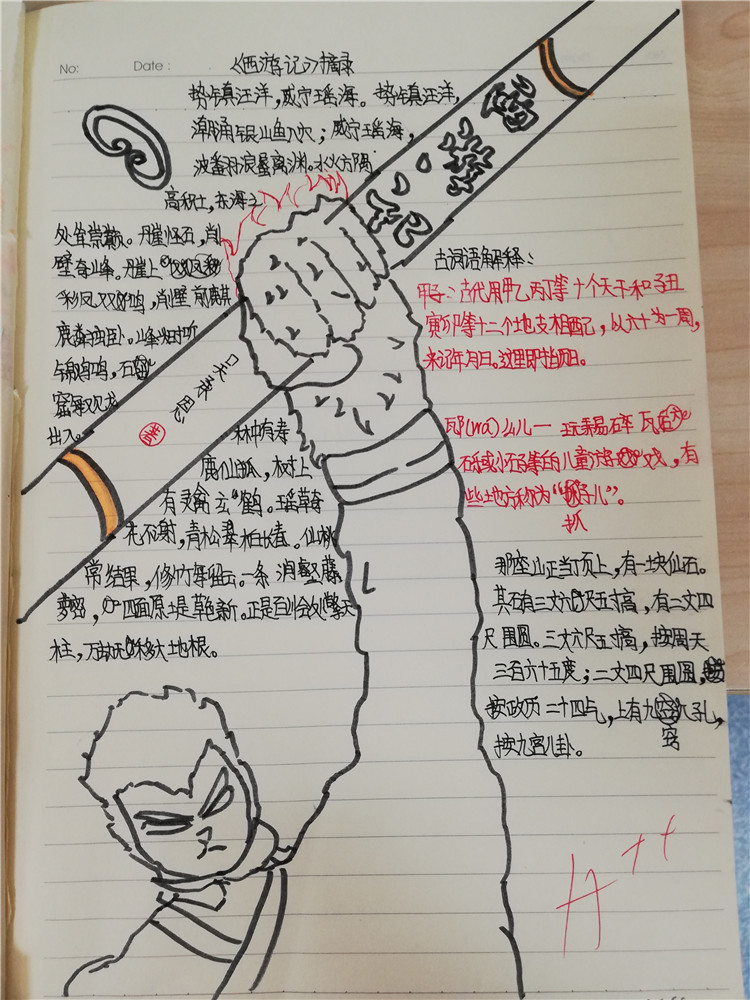 No:
Date:
《西游记》摘录
势镇汪洋，威宁瑶海。势镇汪洋，
潮涌银山鱼入穴；威宁瑶海，
波翻浪蜃离渊。水火方隅
高积土，东海之
处耸崇巅。丹崖怪石，削
壁奇峰。丹崖上
彩凤双鸣，削壁前麒
麟独卧。峰头时听
锦鸡鸣，石
窟每观龙
出入。
林中有寿
鹿仙狐，树上
有灵禽玄鹤。瑶草奇
花不谢，青松翠柏长春。仙桃
常结果，修竹每留云。一条涧壑藤
萝密，四面原堤草色新。正是百川会处擎天
柱，万劫无移大地根。
古词语解释：
甲子：古代用甲乙丙丁等十个天干和子丑
寅卯等十二个地支相配，以六十为一周，
来记年月日。这里即指
(wǎ)么儿一 玩易碎瓦
石或小石等的儿童游戏，有
些地方称为“子儿”。
抓
那座山正当顶上，有一块仙石。
其石有三丈六尺五寸高，有二丈四
尺围圆。三丈六尺五寸高，按周天
三百六十五度；二丈四尺围圆，
按政历二十四气，上有九孔，
窍
按九宫八卦。
A++